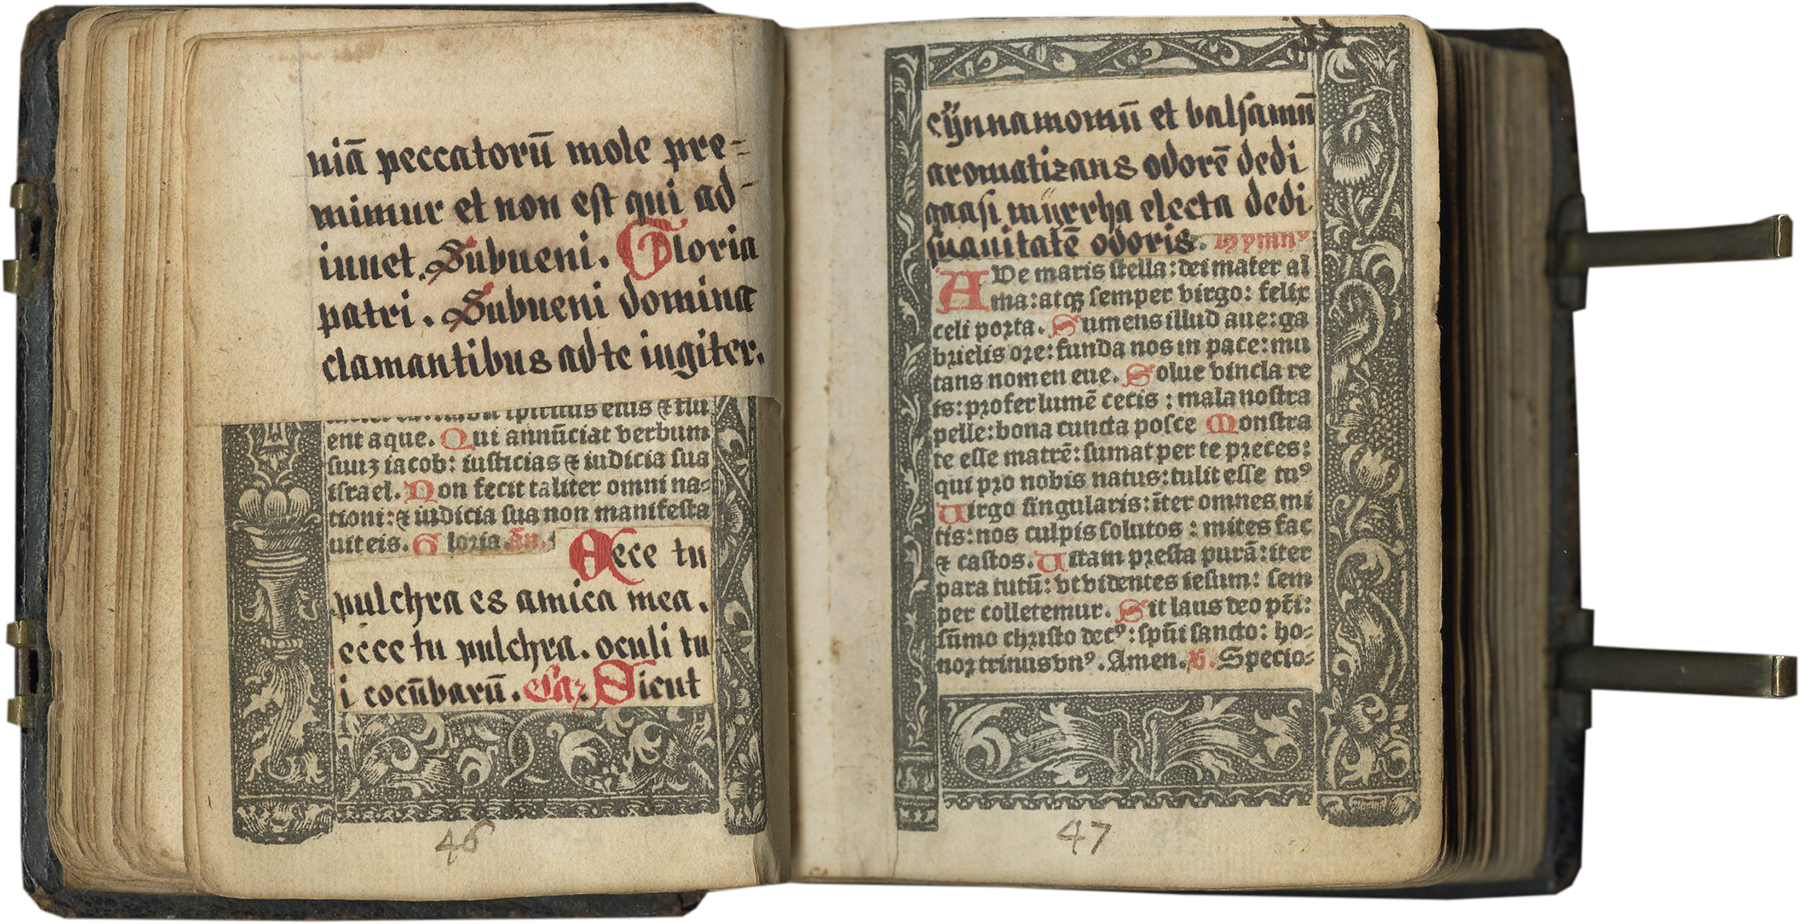 niā peccatorū mole pre-
mimur et non est qui ad-
iuuet. Subueni. Gloria
patri. Subueni domina
clamantibus ad te iugiter.
spiritus eius ⁊ flu
ent aque. Qui annūciat verbum
suuʒ iacob: iusticias ⁊ iudicia sua
israel. Non fecit taliter omni na-
tioni: ⁊ iudicia sua non manifesta
uit eis. Gloria. An.
Ecce tu
pulchra es amica mea.
ecce tu pulchra. oculi tu
i colūbarū. Caꝛ. Sicut
46
cÿnnamomū et balsamū
aromatizans odorē dedi
quasi mÿrrha electa dedi
suauitatē odoris. Hymnꝰ
AUe maris stella: dei mater al
ma: atqꝫ semper virgo: felix
celi poꝛta. Sumens illud aue: ga
bꝛielis oꝛe: funda nos in pace: mu
tans nomen eue. Solue vincla re
is: pꝛofer lumē cecis: mala nostra
pelle: bona cuncta posce Monstra
te esse matrē: sumat per te pꝛeces:
qui pꝛo nobis natus: tulit esse tuꝰ
Uirgo singularis: īter omnes mi
tis: nos culpis solutos: mites fac
⁊ castos. Uitam pꝛesta purā: iter
para tutū: vt videntes iesum: sem
per colletemur. Sit laus deo pr̄i:
sūmo christo decꝰ: spūi sancto: ho-
noꝛ trinus vnꝰ. Amen. ℣. Specio-
47